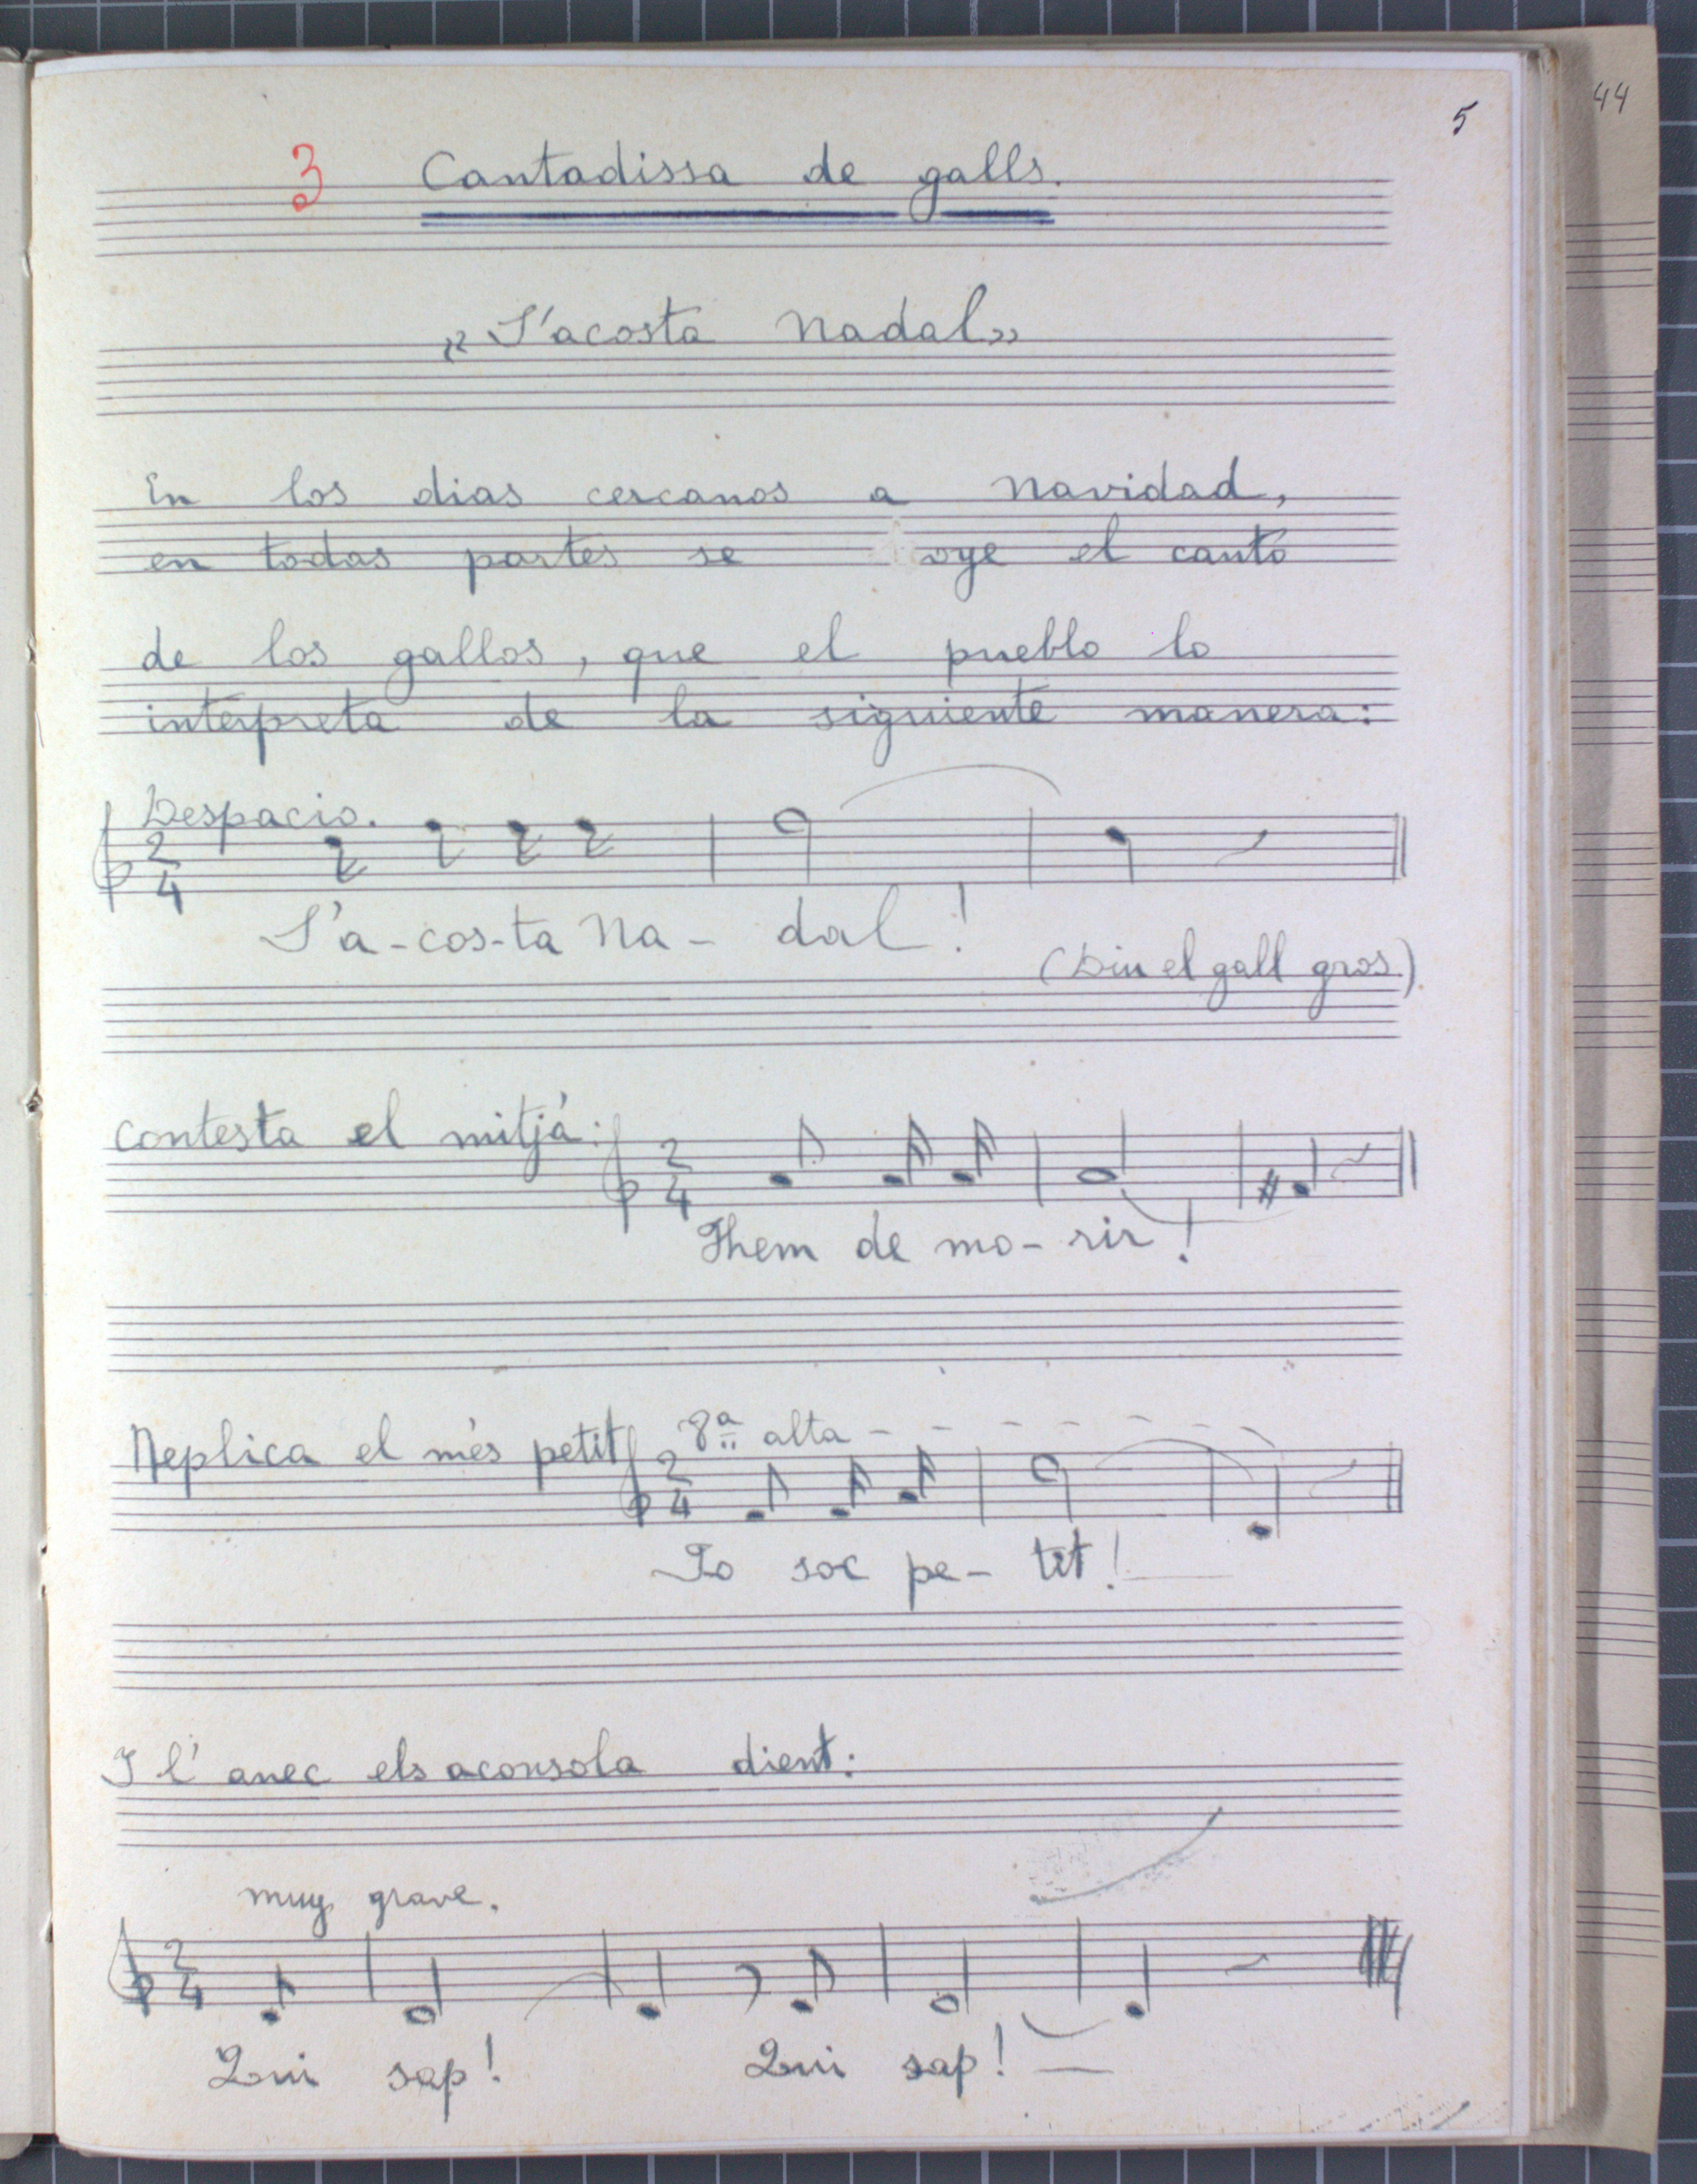 5
44
3 Cantadissa de galls.
„S'acosta Nadal»
En los dias cercanos a Navidad,
en todas partes se oye el canto
de los gallos, que el pueblo lo
interpreta de la siguiente manera:
Despacio.
2/4
S'a-cos-ta Na- dal!
(Diu el gall gros.)
Contesta el mitjá:
2/4
Them de mo- rir!
Replica el més petit
8ª alta
2/4
Jo soc pe- tit!
I l'anec els aconsola dient:
muy grave.
2/4
Qui sap! Qui sap!